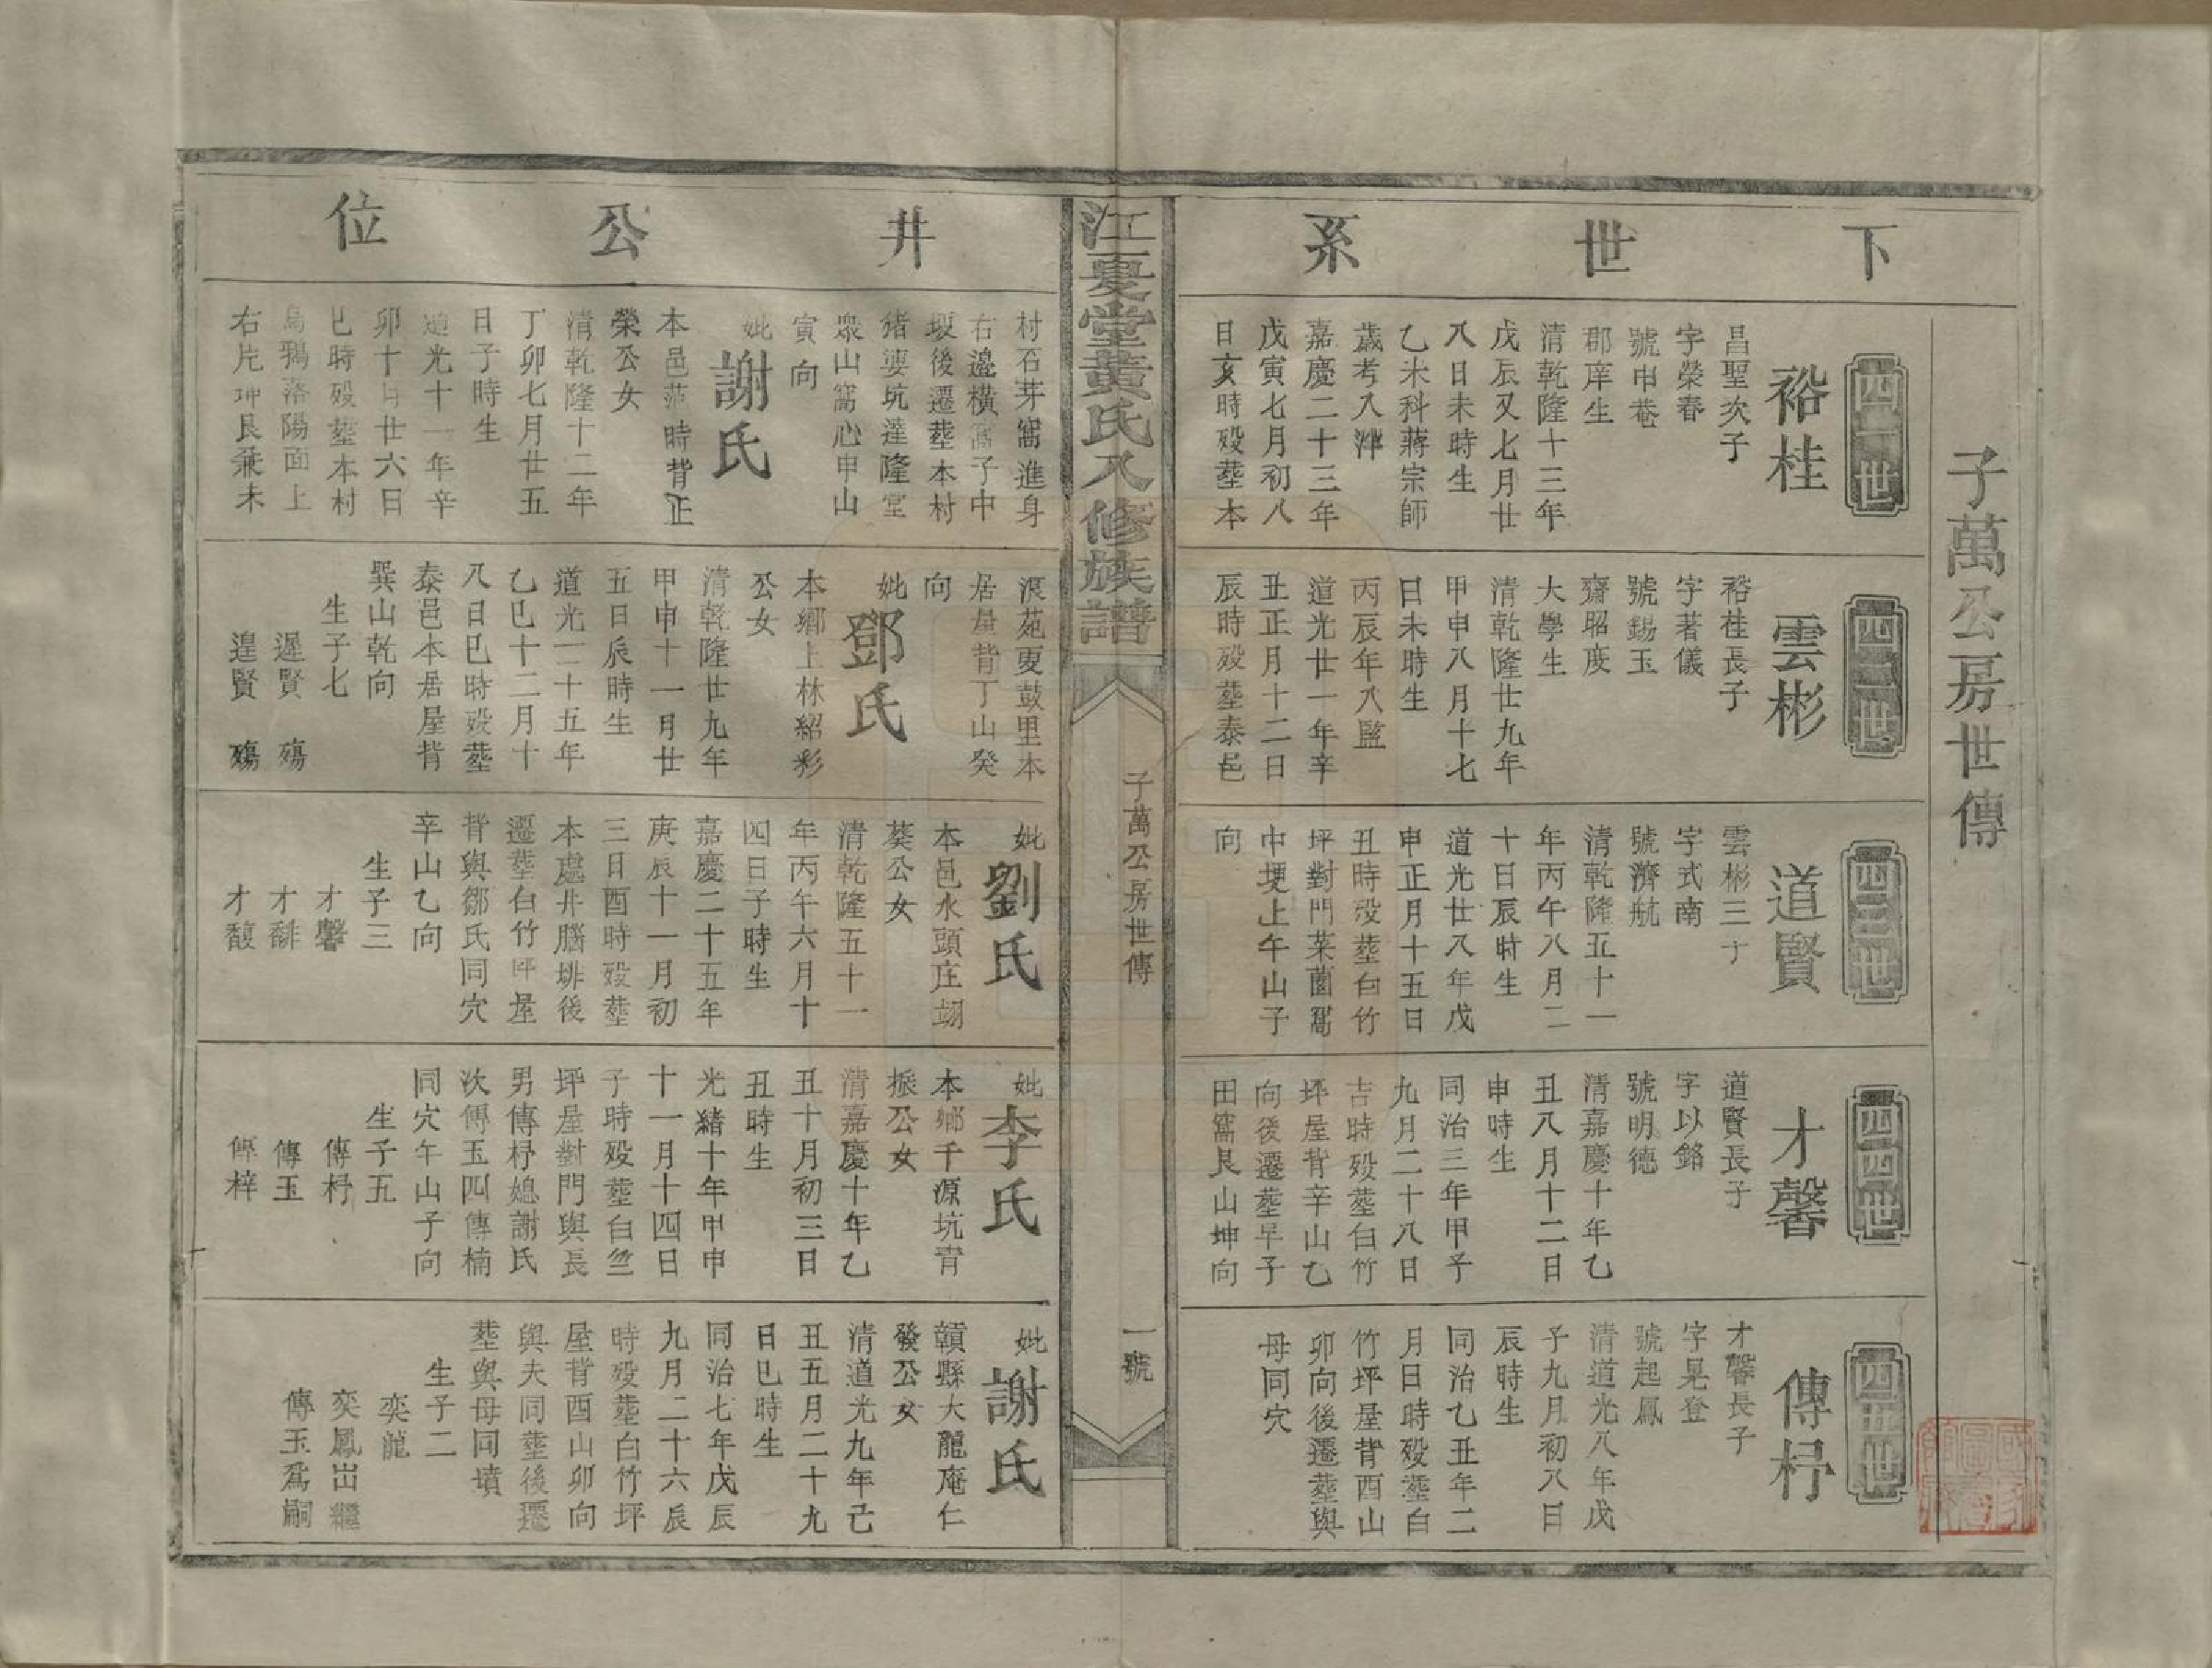 子萬公房世傳
下世系
四一世
裕桂
昌聖次子
字榮春
號申菴
郡庠生
清乾隆十三年
戊辰又七月廿
八日未時生
乙未科蔣宗師
歲考入泮
嘉慶二十三年
戊寅七月初八
日亥時殁塟本
四二世
雲彬
裕桂長子
字著儀
號錫玉
齋昭度
大學生
清乾隆廿九年
甲申八月十七
日未時生
丙辰年入監
道光廿一年辛
丑正月十二日
辰時殁塟泰邑
四三世
道賢
雲彬三子
字式南
號濟航
清乾隆五十一
年丙午八月二
十日辰時生
道光廿八年戊
申正月十五日
丑時殁塟白竹
坪對門菜園窩
中埂上午山子
向
四四世
才馨
道賢長子
字以銘
號明德
清嘉慶十年乙
丑八月十二日
申時生
同治三年甲子
九月二十八日
吉時殁塟白竹
坪屋背辛山乙
向後遷塟早子
田窩艮山坤向
四五世
傳杍
才馨長子
字晃登
號起鳳
清道光八年戊
子九月初八日
辰時生
同治乙丑年二
月日時殁塟白
竹坪屋背酉山
卯向後遷塟與
母同穴
江夏堂黃氏八修族譜
子萬公房世傳
一號
井公位
村石芽窩進身
右邊橫窩子中
堰後遷塟本村
猪婆坑蓬隆堂
眾山窩心申山
寅向
妣謝氏
本邑范時背正
榮公女
清乾隆十二年
丁卯七月廿五
日子時生
道光十一年辛
卯十月廿六日
巳時殁塟本村
烏鴉落陽面上
右片坤艮兼未
浪苑更鼓里本
居屋背丁山癸
向
妣鄧氏
本鄉上林紹彩
公女
清乾隆廿九年
甲申十一月廿
五日辰時生
道光二十五年
乙巳十二月十
八日巳時殁塟
泰邑本居屋背
巽山乾向
生子七
遲賢 殤
遑賢 殤
妣劉氏
本邑水頭庄翊
葵公女
清乾隆五十一
年丙午六月十
四日子時生
嘉慶二十五年
庚辰十一月初
三日酉時殁塟
本處井腦排後
遷塟白竹坪屋
背與鄒氏同穴
辛山乙向
生子三
才馨
才馡
才馥
妣李氏
本鄉千源坑青
振公女
清嘉慶十年乙
丑十月初三日
丑時生
光緒十年甲申
十一月十四日
子時殁塟白竺
坪屋對門與長
男傳杍媳謝氏
次傳玉四傳楠
同穴午山子向
生子五
傳杍
傳玉
傳梓
妣謝氏
贛縣大龍庵仁
發公女
清道光九年己
丑五月二十九
日巳時生
同治七年戊辰
九月二十六辰
時殁塟白竹坪
屋背酉山卯向
與夫同塟後遷
塟與母同墳
生子二
奕龍
奕鳳出繼
傳玉爲嗣